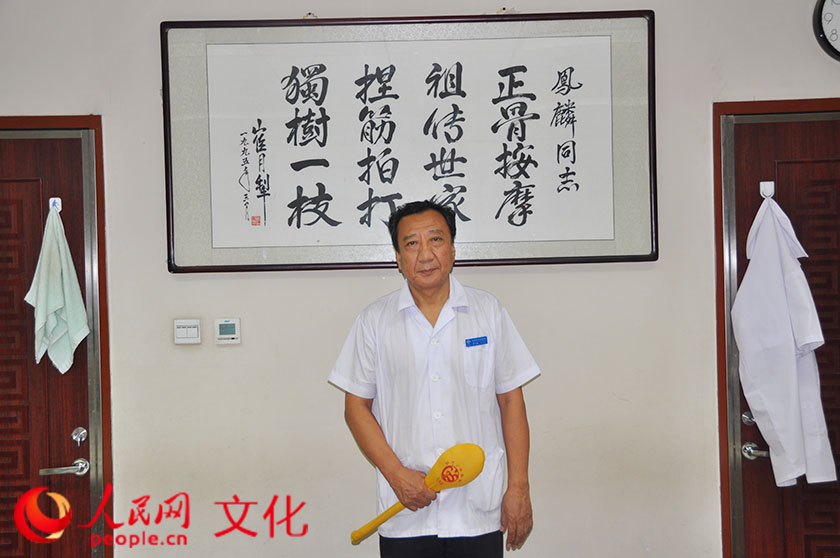 鳳麟同志
正骨按摩
祖传世家
捏筋拍打
獨樹一枝
崔月犁
一九九五年三月
人民网 文化
people.cn